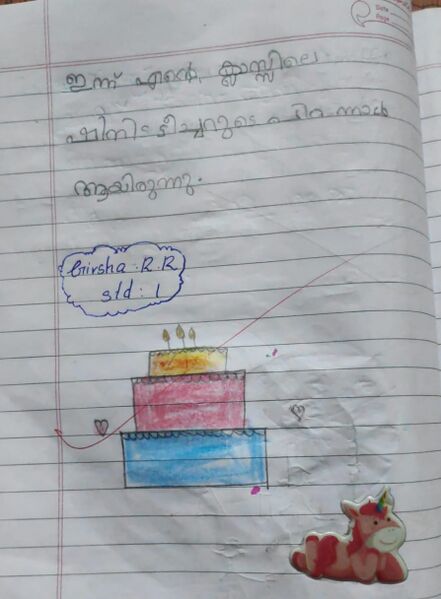 ഇന്ന് എന്റെ ക്ലാസ്സിലെ
ഷിനി ടീച്ചറുടെ പിറന്നാൾ
ആയിരുന്നു.
Girsha. R. R
std : 1
Date
Page